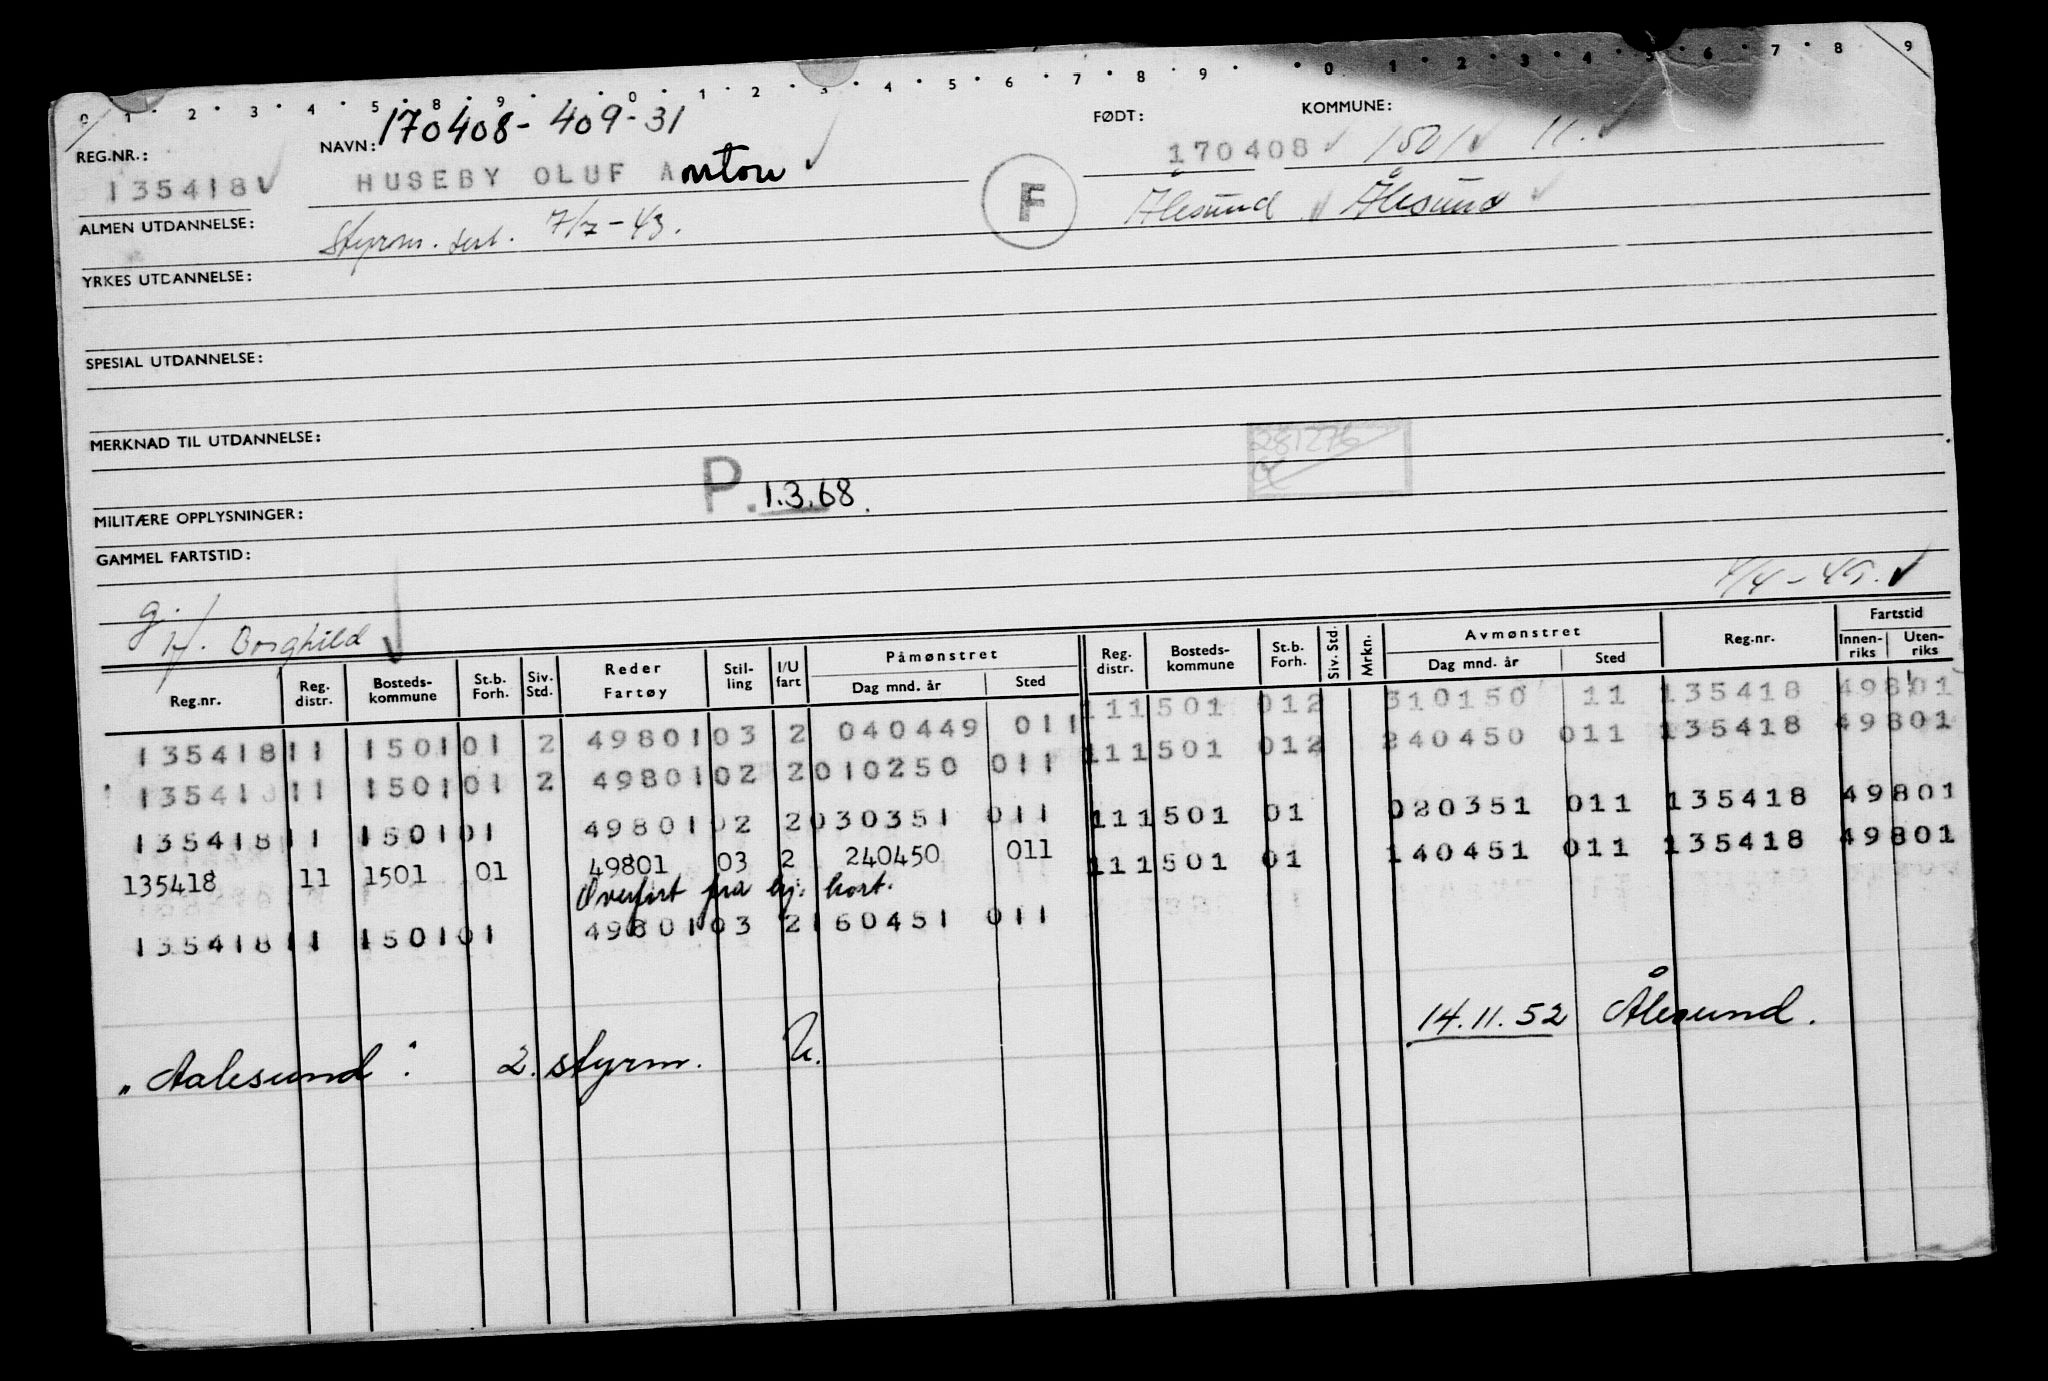 0 1 2 3 4 5 8 9 0 1 2 3 4 5 6 7 8 9 0 1 2 3 4 5 6 7 8 9
170408-409-31
REG.NR.: NAVN: FØDT: KOMMUNE:
135418 HUSEBY OLUF Anton 170408 1501 11.
F
ALMEN UTDANNELSE: Styrm. 7/7-43. Ålesund Ålesund
YRKES UTDANNELSE:
SPESIAL UTDANNELSE:
MERKNAD TIL UTDANNELSE:
281276
P. 1.3.68.
MILITÆRE OPPLYSNINGER:
GAMMEL FARTSTID:
4/4-49.
gj. Borghild
Reg.nr. Reg. distr. Bosteds-kommune St.b. Forh. Siv. Std. Reder Fartøy Stil-ling I/U fart Påmønstret Dag mnd. år Sted Reg. distr. Bosteds-kommune St.b. Forh. Siv. Std. Mrkn. Avmønstret Dag mnd. år Sted Reg.nr. Fartstid Innen-riks Uten-riks
135418 11 1501 01 2 49801 03 2 040449 011 11 1501 012 310150 11 135418 49801
135418 11 1501 01 2 49801 02 2 010250 011 11 1501 012 240450 011 135418 49801
135418 11 1501 01 49801 02 2 030351 011 11 1501 01 020351 011 135418 49801
135418 11 1501 01 49801 03 2 240450 011 11 1501 01 140451 011 135418 49801
Overført fra hj. kort.
135418 11 1501 01 49801 03 2 160451 011
"Aalesund". 2. styrm. U. 14.11.52 Ålesund.